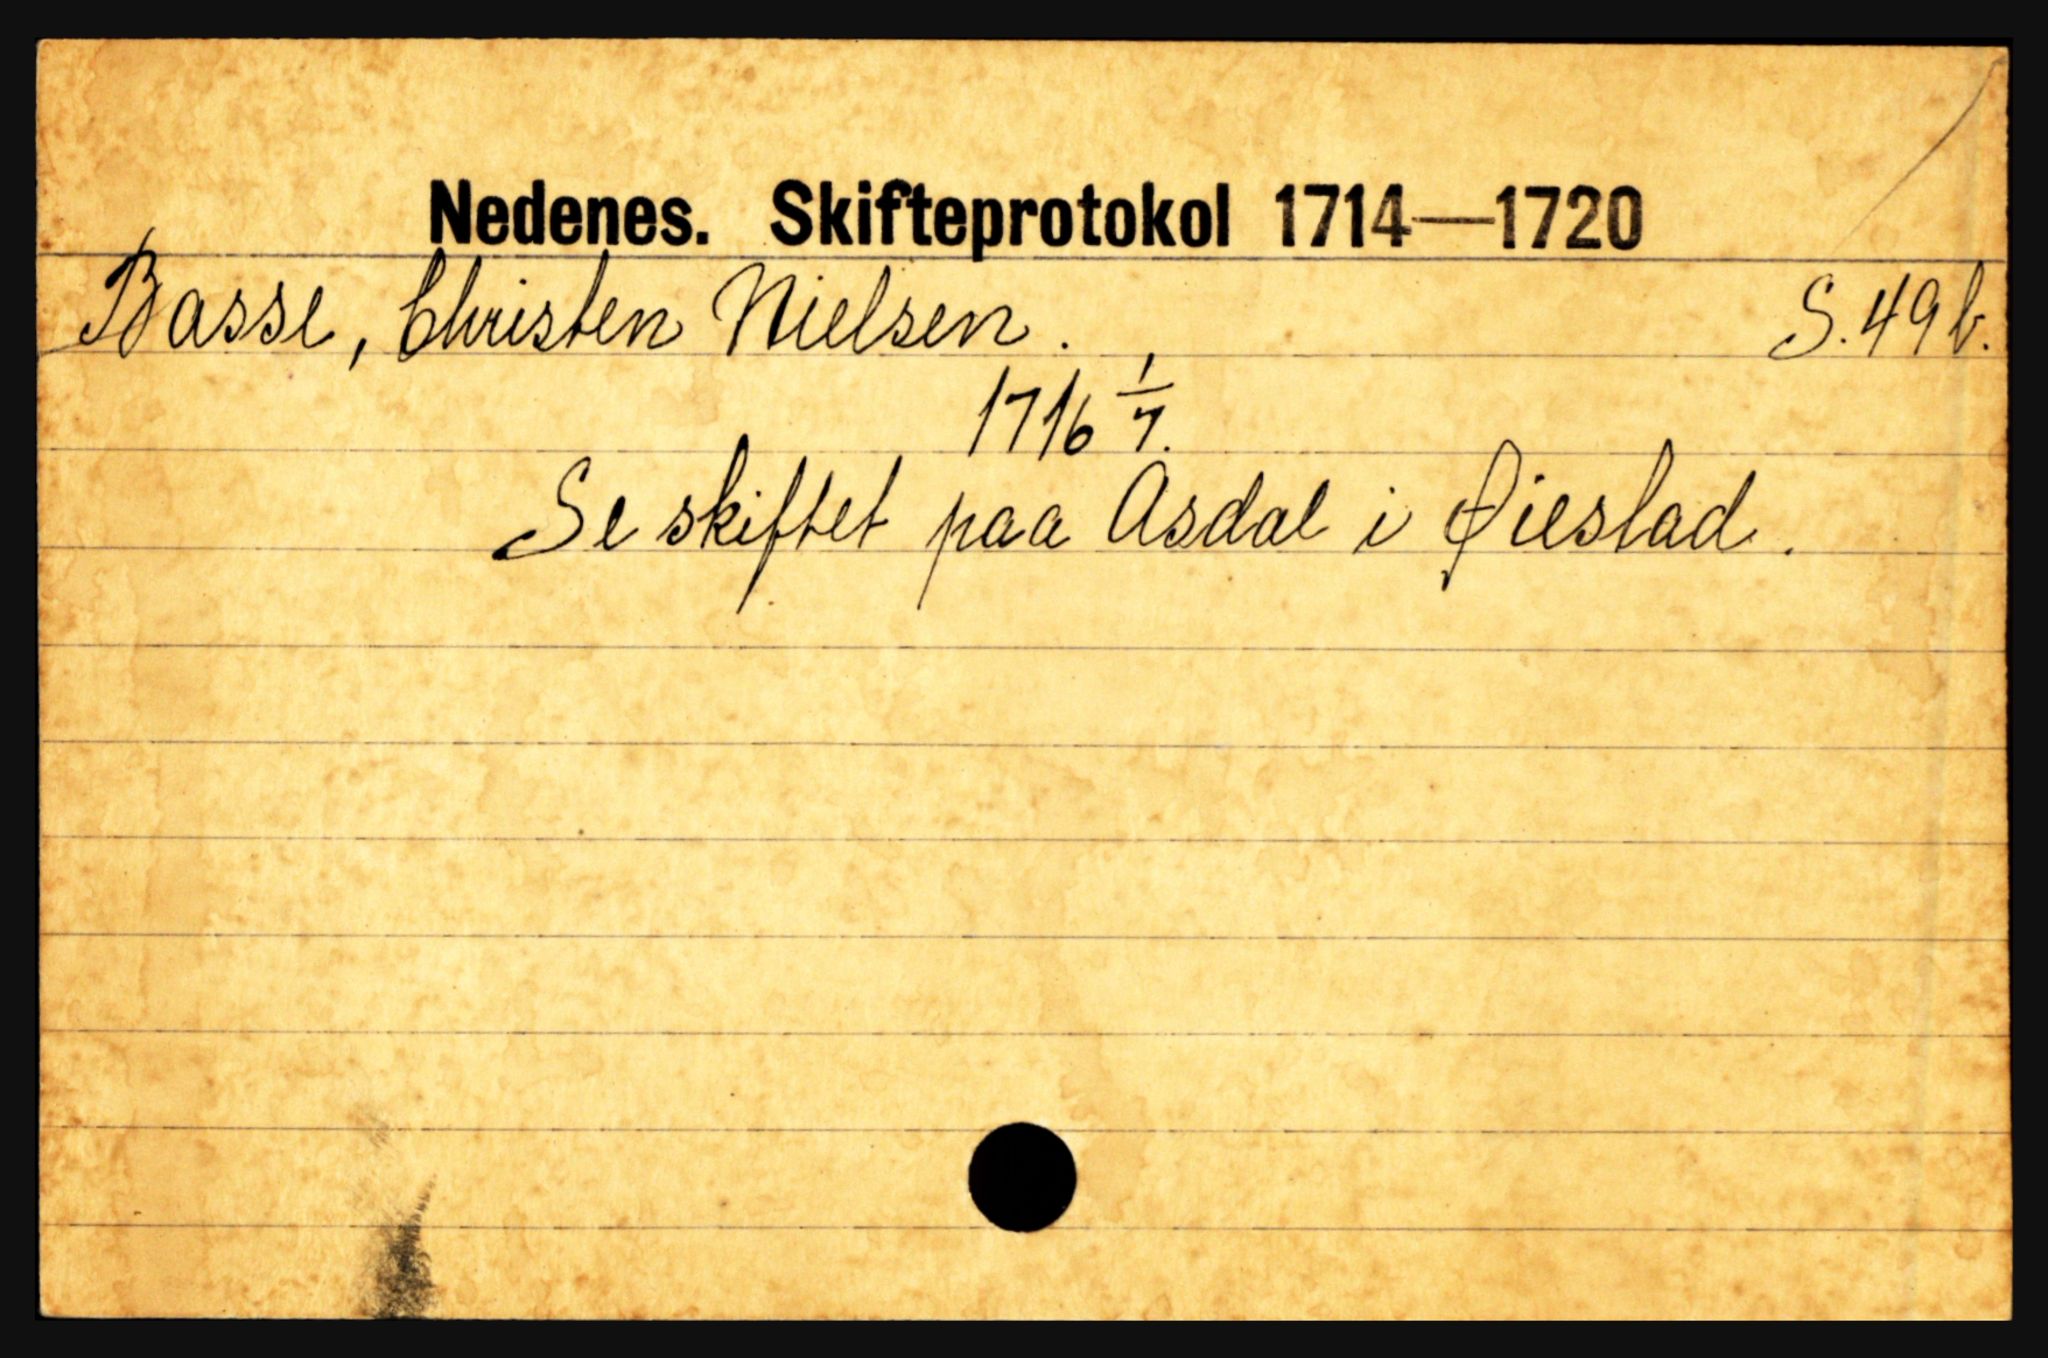 Nedenes. Skifteprotokol 1714—1720
Basse, Christen Nielsen. S. 49 b.
1716 1/7.
Se skiftet paa Asdal i Øiestad.